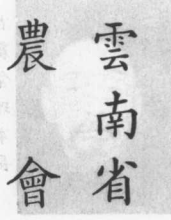 雲南省
農會